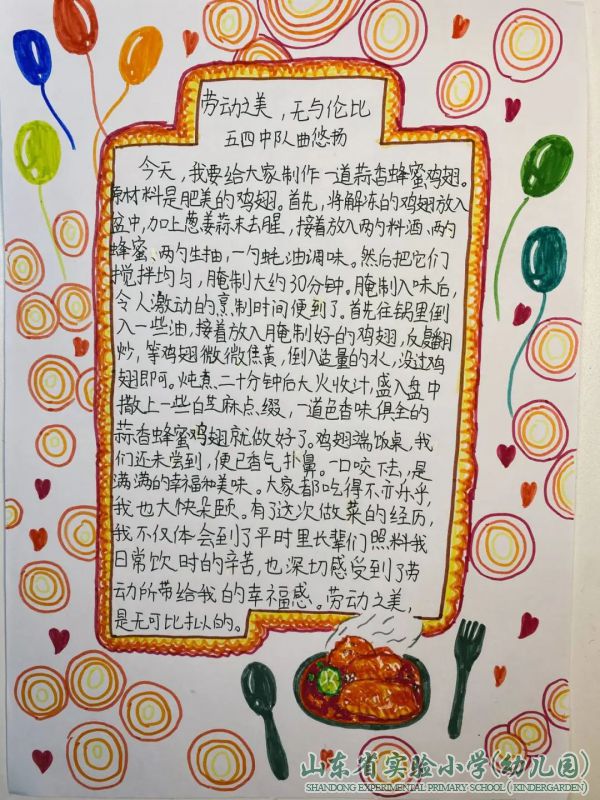 劳动之美，无与伦比
五四中队曲悠扬
今天，我要给大家制作一道蒜香蜂蜜鸡翅。
原材料是肥美的鸡翅。首先，将解冻的鸡翅放入
盆中，加上葱姜蒜末去腥，接着放入两勺料酒、两勺
蜂蜜、两勺生抽，一勺蚝油调味。然后把它们
搅拌均匀，腌制大约30分钟。腌制入味后，
令人激动的烹制时间便到了。首先往锅里倒
入一些油，接着放入腌制好的鸡翅，反复翻
炒，等鸡翅微微焦黄，倒入适量的水，没过鸡
翅即可。炖煮二十分钟后大火收汁，盛入盘中
撒上一些白芝麻点缀，一道色香味俱全的
蒜香蜂蜜鸡翅就做好了。鸡翅端饭桌，我
们还未尝到，便已香气扑鼻。一口咬下去，是
满满的幸福和美味。大家都吃得不亦乐乎，
我也大快朵颐。有了这次做菜的经历，
我不仅体会到了平时里长辈们照料我
日常饮时的辛苦，也深切感受到了劳
动所带给我的幸福感。劳动之美，
是无可比拟的。
山东省实验小学(幼儿园)
SHANDONG EXPERIMENTAL PRIMARY SCHOOL (KINDERGARDEN)